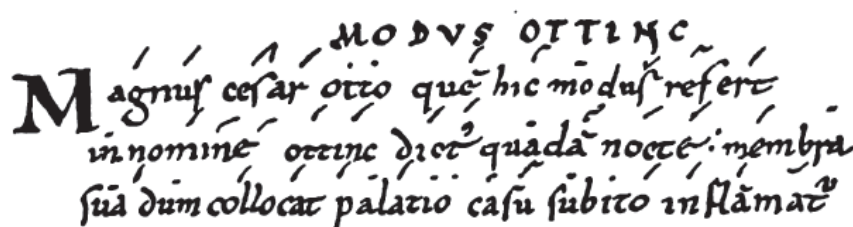 MODVS OTTINC
Magnuſ ceſar otto quē hic moduſ refert
in nomine ottinc dictꝰ quadā nocte: membra
ſua dum collocat palatio caſu ſubito inflāmat᷑